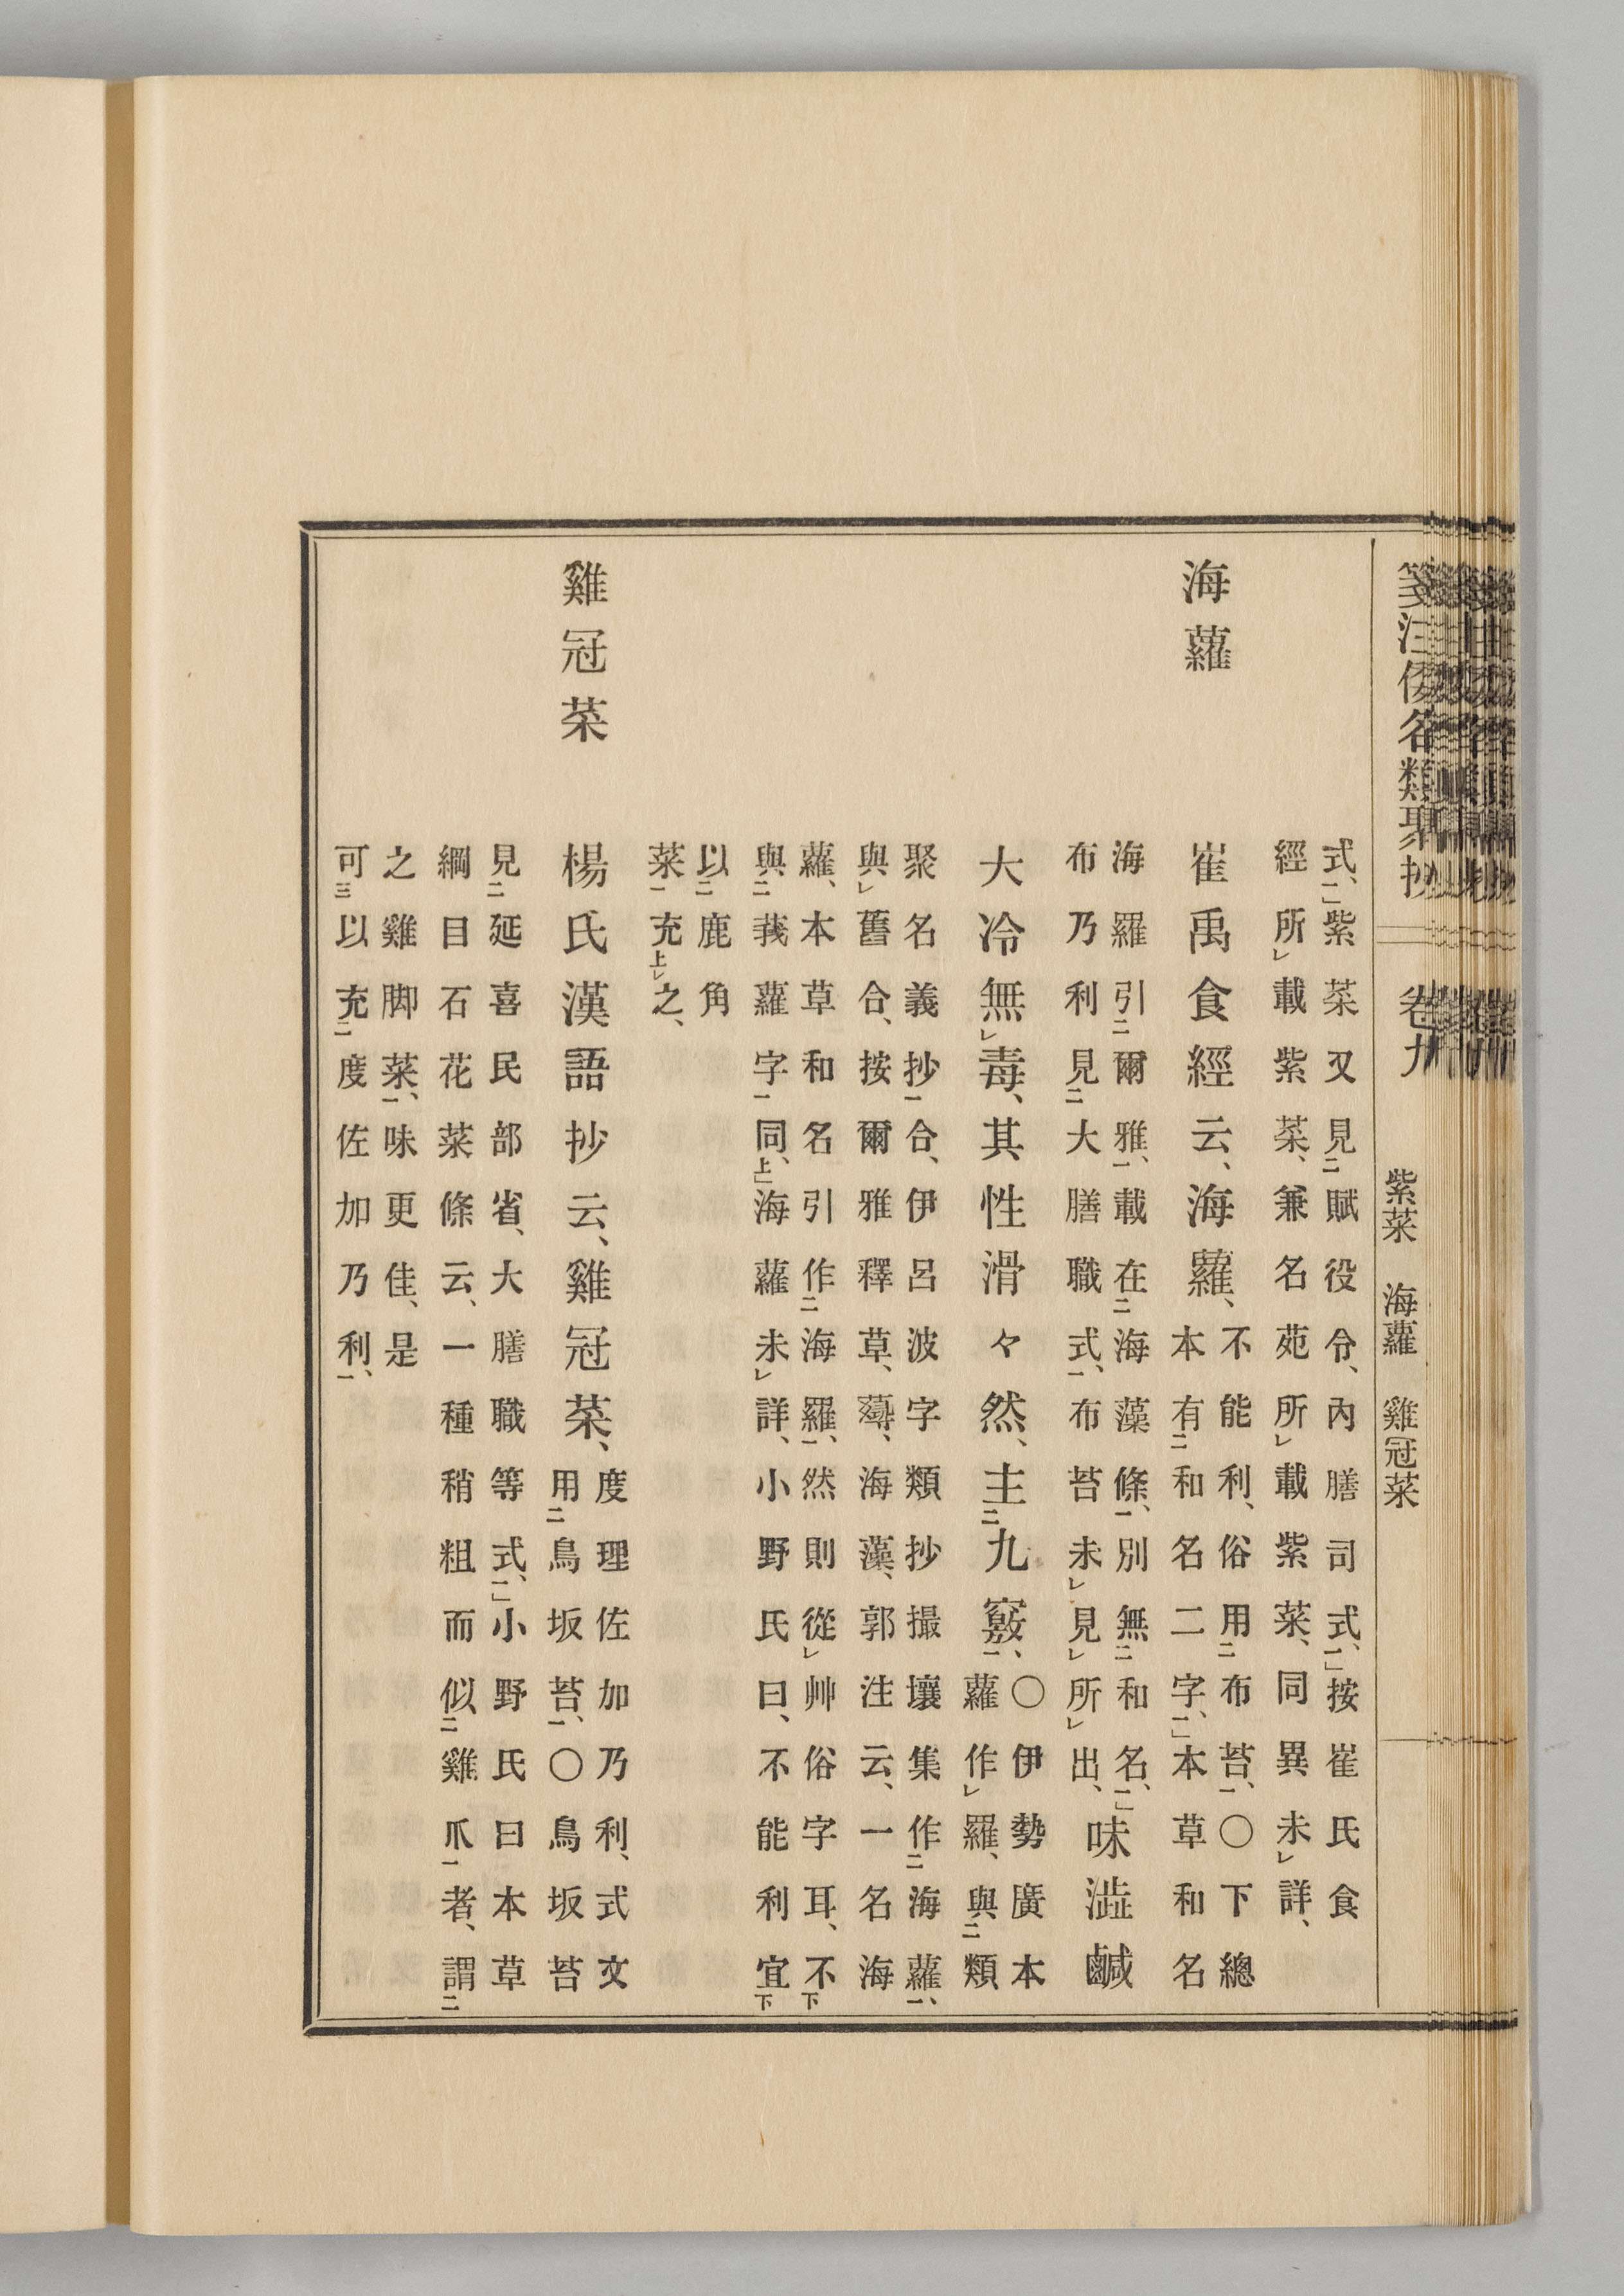 箋注倭名類聚抄 卷九 紫菜 海蘿 雞冠菜
式、紫菜又見賦役令、內膳司式、按崔氏食
經所載紫菜、兼名苑所載紫菜、同異未詳、
海蘿 崔禹食經云、海蘿、
不能利、俗用布苔、〇下總
本有和名二字、本草和名
海羅引爾雅、載在海藻條、別無和名、
布乃利見大膳職式、布苔未見所出、
味澁鹹
大冷無毒、其性滑々然、主九竅、
〇伊勢廣本
蘿作羅、與類
聚名義抄合、伊呂波字類抄撮壤集作海蘿、
與舊合、按爾雅釋草、薚、海藻、郭注云、一名海
蘿、本草和名引作海羅、然則從艸俗字耳、不
與莪蘿字同、海蘿未詳、小野氏曰、不能利宜
以鹿角
菜充之、
雞冠菜 楊氏漢語抄云、雞冠菜、
度理佐加乃利、式文
用鳥坂苔、〇鳥坂苔
見延喜民部省、大膳職等式、小野氏曰本草
綱目石花菜條云、一種稍粗而似雞爪者、謂
之雞脚菜、味更佳、是
可以充度佐加乃利、